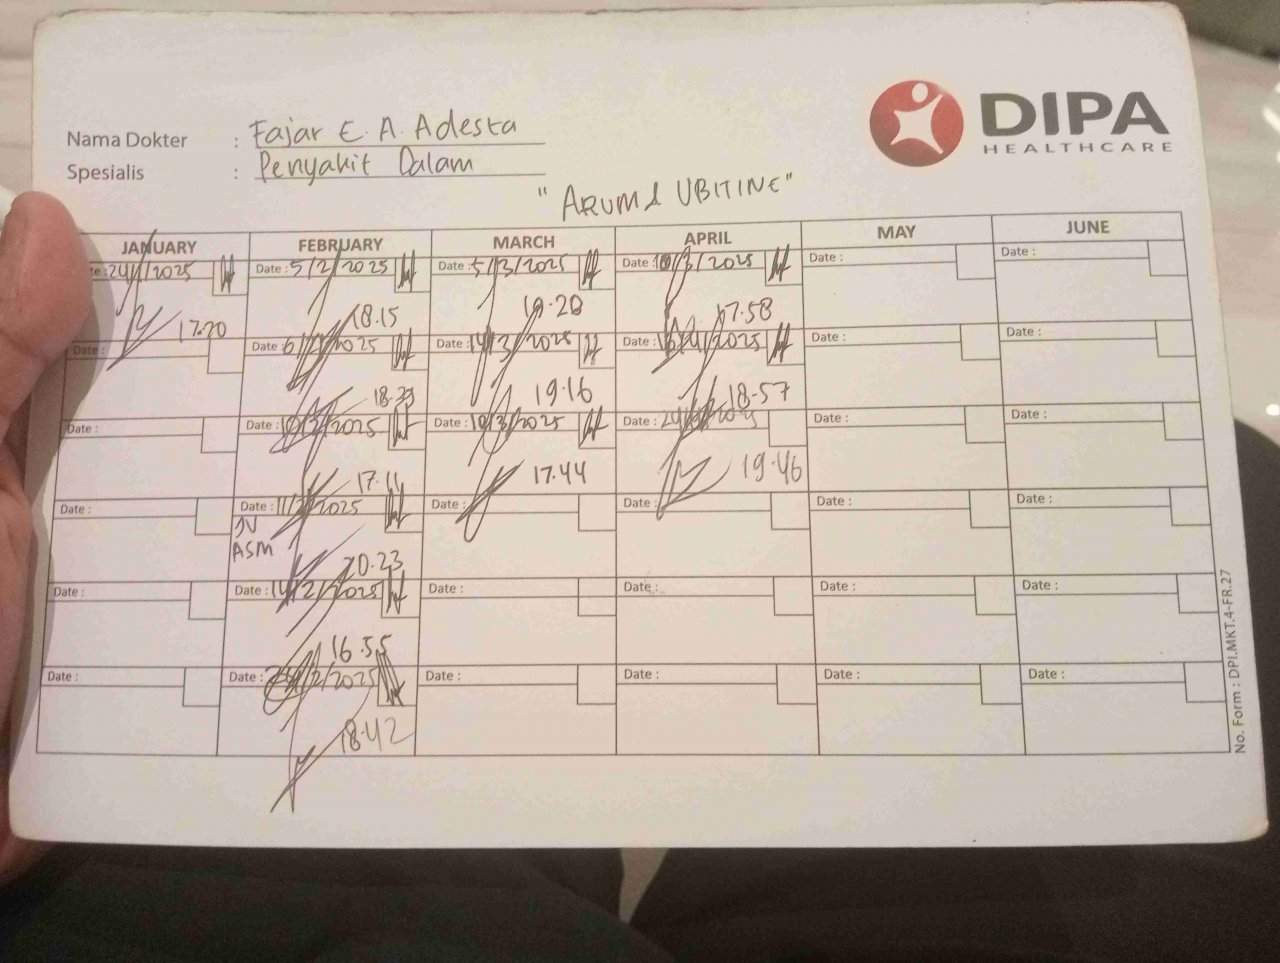 DIPA
HEALTHCARE
Nama Dokter : Fajar E. A. Adesta
Spesialis : Penyakit Dalam
"ARUM & UBITINE"
JANUARY FEBRUARY MARCH APRIL MAY JUNE
24/1/2025 Date : 5/2/2025 Date : 5/3/2025 Date : /3/2025 Date : Date :
17.20 18.15 19.20 17.58
Date : Date : 6/2/2025 Date : 14/3/2025 Date : 16/4/2025 Date : Date :
18.33 19.16 18-57
Date : Date : 10/2/2025 Date : 10/3/2025 Date : 24/ Date : Date :
17.11 17.44 19.46
Date : Date : 11/2/2025 Date : Date : Date : Date :
JV
ASM
20.23
Date : Date : 14/2/2025 Date : Date : Date : Date :
16.55
Date : Date : /2/2025 Date : Date : Date : Date :
18.42
No. Form : DPI.MKT.4-FR.27